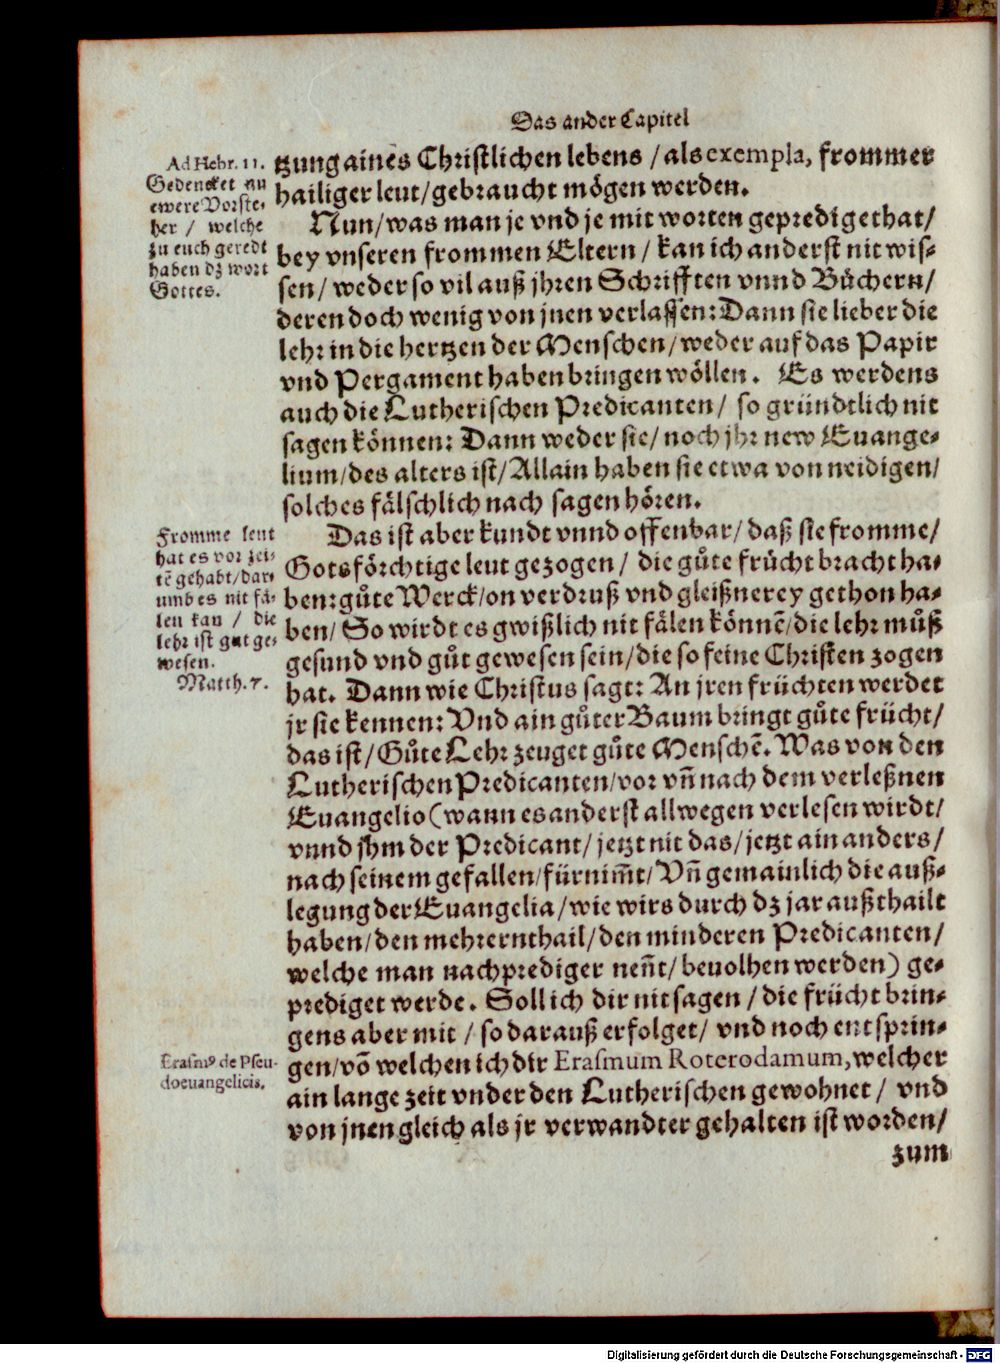 Das ander Capitel
Ad Hebr. 11.
Gedencket an
ewere Vorste-
her / welche
zu euch geredt
haben dz wort
Gottes.
tzung aines Christlichen lebens / als exempla, frommer
hailiger leut/gebraucht mögen werden.
Nun/was man je vnd je mit worten geprediget hat/
bey vnseren frommen Eltern / kan ich anderst nit wis-
sen/ weder so vil auß jhren Schrifften vnnd Bůchern/
deren doch wenig von jnen verlassen: Dann sie lieber die
lehr in die hertzen der Menschen/weder auf das Papir
vnd Pergament haben bringen wöllen. Es werdens
auch die Lutherischen Predicanten/ so gründtlich nit
sagen können: Dann weder sie/noch jhr new Euange-
lium/des alters ist/Allain haben sie etwa von neidigen/
solches fälschlich nach sagen hören.
Fromme leut
hat es vor zei-
tē gehabt/dar-
umb es nit fä-
len kan / die
lehr ist gut ge-
wesen.
Matth. 7.
Das ist aber kundt vnnd offenbar/ daß sie fromme/
Gotsförchtige leut gezogen/ die gůte frůcht bracht ha-
ben: gůte Werck/on verdruß vnd gleißnerey gethon ha-
ben/ So wirdt es gwißlich nit fälen könnē/die lehr můß
gesund vnd gůt gewesen sein/die so feine Christen zogen
hat. Dann wie Christus sagt: An jren früchten werdet
jr sie kennen: Vnd ain gůter Baum bringt gůte frücht/
das ist/Gůte Lehr zeuget gůte Menschē. Was von den
Lutherischen Predicanten/vor vñ nach dem verleßnen
Euangelio (wann es anderst allwegen verlesen wirdt/
vnnd jhm der Predicant/jetzt nit das/jetzt ain anders/
nach seinem gefallen/fürnim̃t/Vñ gemainlich die auß-
legung der Euangelia/wie wirs durch dz jar außthailt
haben/den mehrern thail/den minderen Predicanten/
welche man nachprediger neñt/beuolhen werden) ge-
prediget werde. Soll ich dir nit sagen / die frücht brin-
gens aber mit / so darauß erfolget/ vnd noch entsprin-
Erasmꝰ de Pseu-
doeuangelicis.
gen/vō welchen ich dir Erasmum Roterodamum, welcher
ain lange zeit vnder den Lutherischen gewohnet / vnd
von jnen gleich als jr verwandter gehalten ist worden/
zum
Digitalisierung gefördert durch die Deutsche Forschungsgemeinschaft - DFG